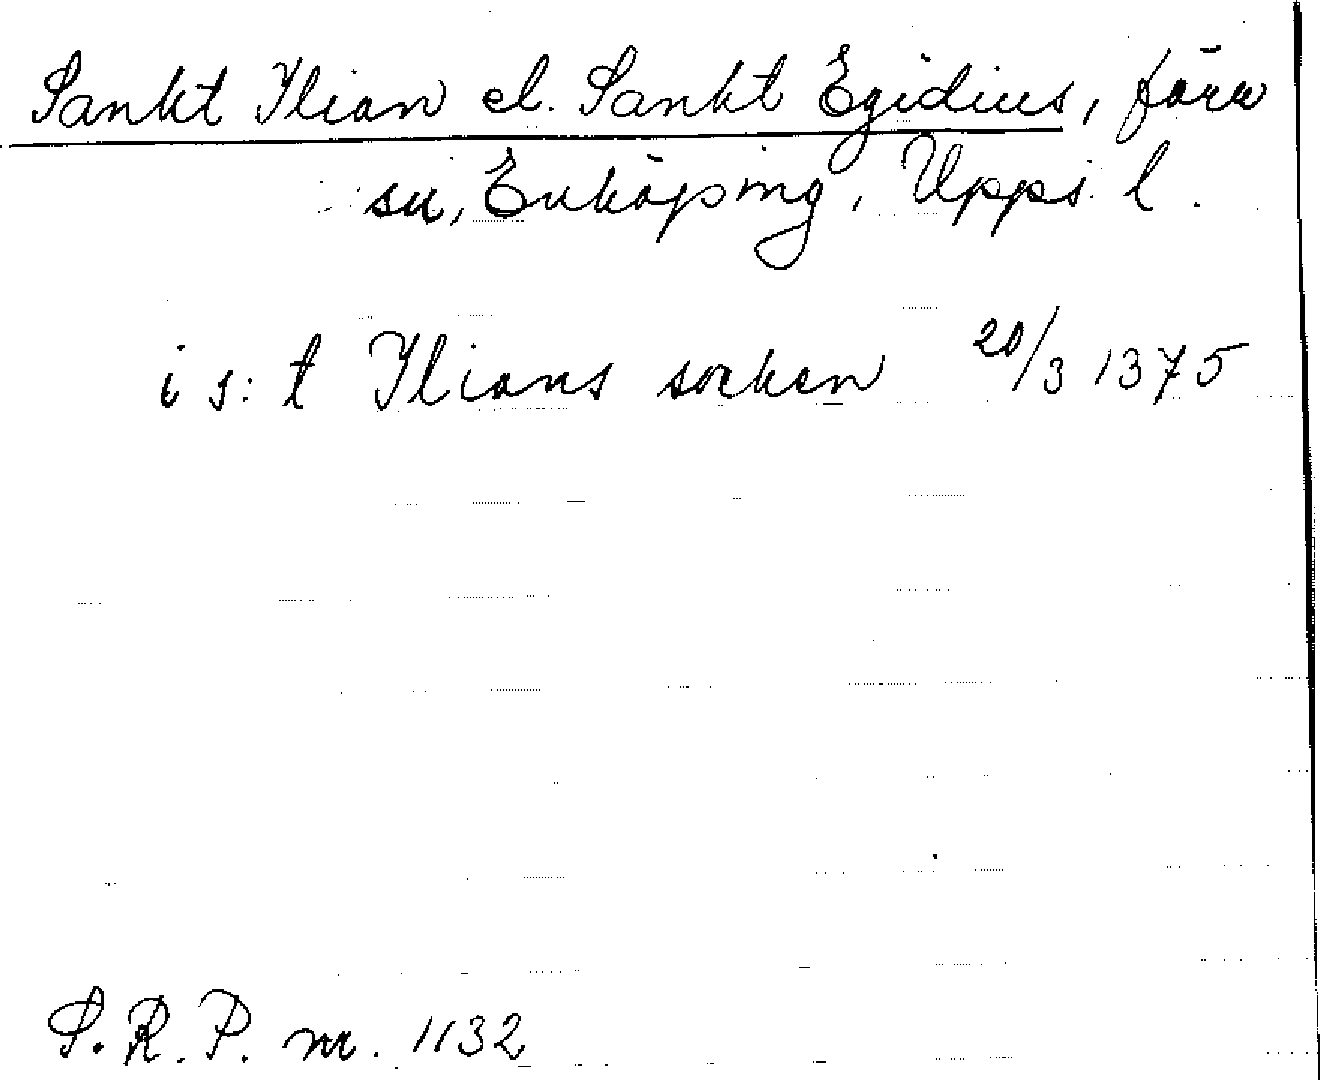 Sankt Ilian el. Sankt Egidius, förr
sn, Enköping, Upps. l.
i s:t Ilians sockan 20/3 1375
S.R.P. nr. 1132